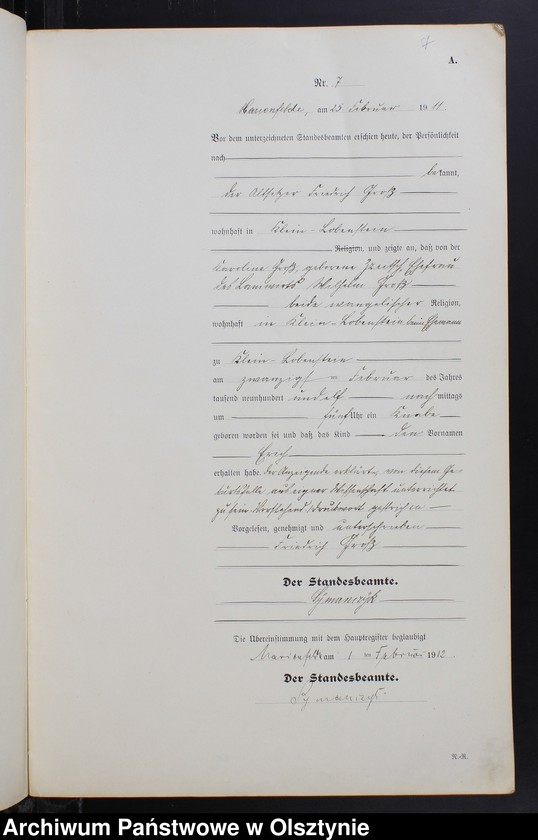 7
A.
Nr. 7
Marienfelde, am 25 Februar 1911
Vor dem unterzeichneten Standesbeamten erschien heute, der Persönlichkeit
nach
bekannt,
der Altsitzer Friedrich Groß
wohnhaft in Klein-Lobenstein
Religion, und zeigte an, daß von der
Karoline Groß, geborene Ehefrau
des Landwirts Wilhelm Groß
beide evangelischer Religion,
wohnhaft in Klein-Lobenstein beim Ehemann
zu Klein-Lobenstein
am zwanzigsten Februar des Jahres
tausend neunhundert und elf nachmittags
um fünf Uhr ein Knabe
geboren worden sei und daß das Kind den Vornamen
Erich
erhalten habe. Der Anzeigende erklärte, von diesem Ge-
burtsfalle aus eigner Wissenschaft unterrichtet
zu sein. Vorstehend Druckwort gestrichen
Vorgelesen, genehmigt und unterschrieben
Friedrich Groß
Der Standesbeamte.
Symanczyk
Die Übereinstimmung mit dem Hauptregister beglaubigt
Marienfelde am 1 ten Februar 1912.
Der Standesbeamte.
Symanczyk
Archiwum Państwowe w Olsztynie